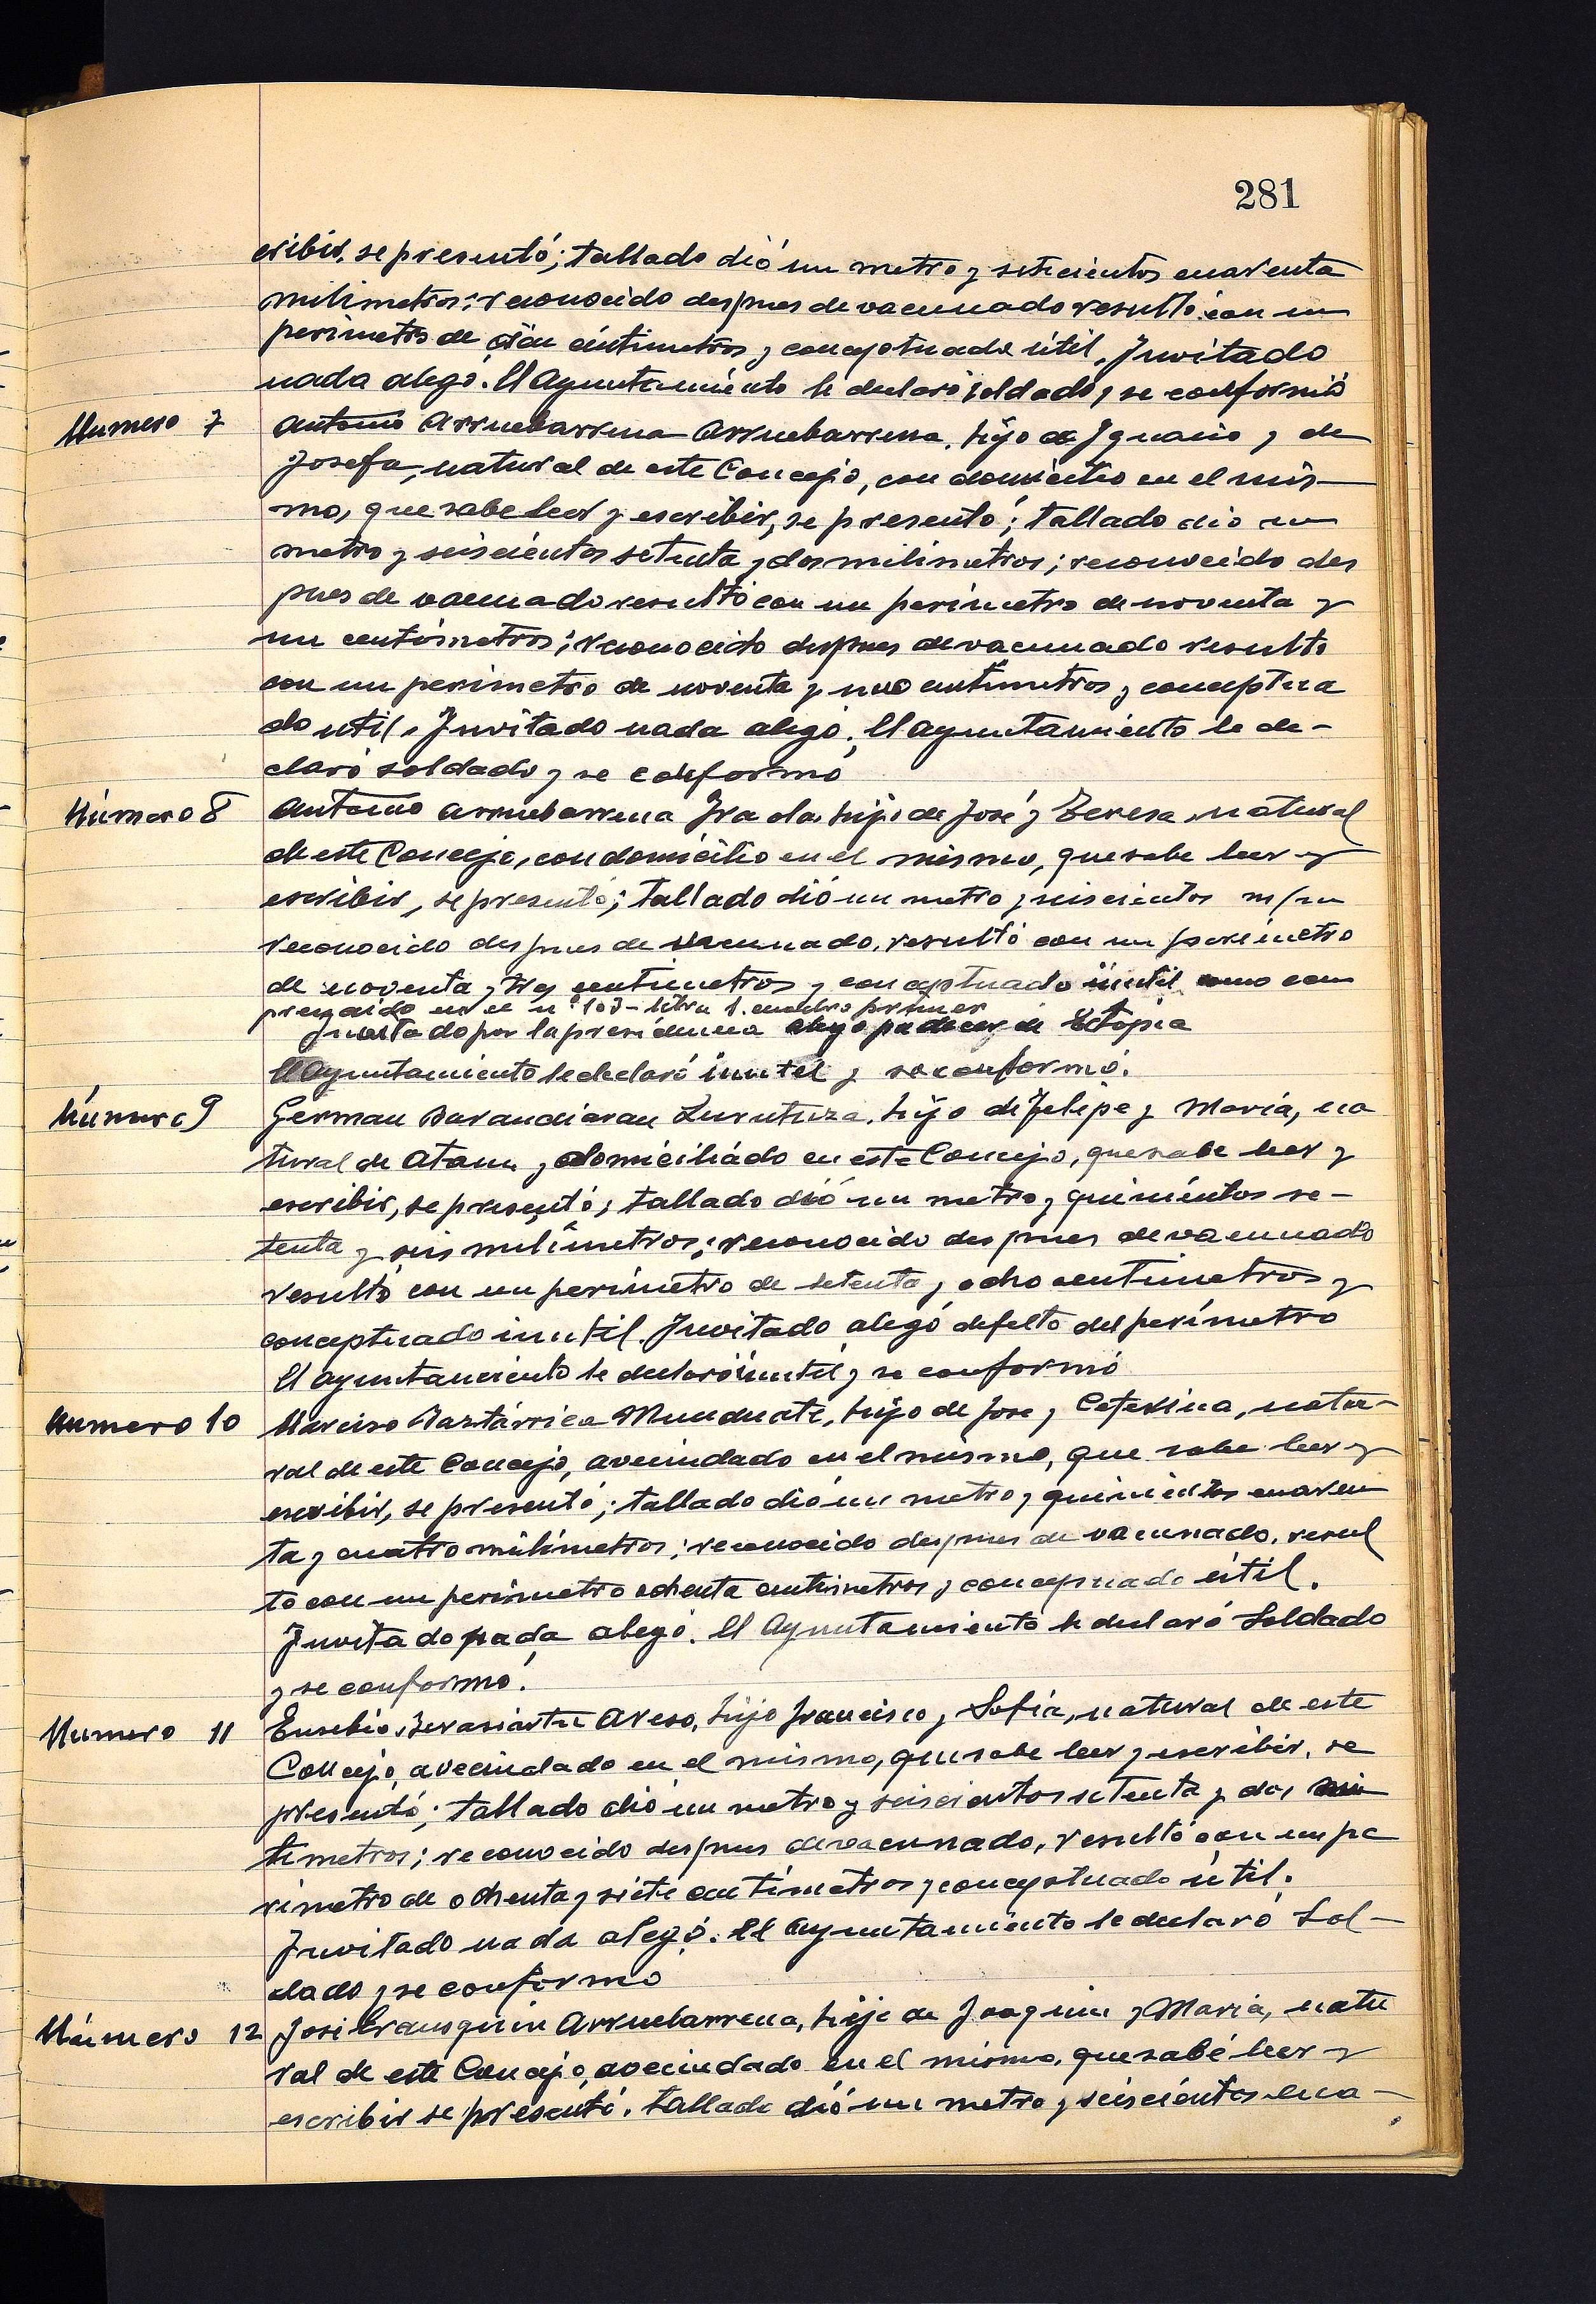 281
cribir, se presentó; tallado dió un metro y setecientos cuarenta
milimetros; reconocido despues de vacunado resultó con un
perimetro de cien céntimetros y conceptuado útil. Invitado
nada alegó. El Ayuntamiento le declaró soldado y se conformó
Numero 7 Antonio Arruebarrena Arruebarrena, hijo de Ignacio y de
Josefa, natural de este Concejo, con domicilio en el mis-
mo, que sabe leer y escribir, se presentó; tallado dio un
metro y seiscientos setenta y dos milimetros; reconocido des
pues de vacunado resultó con un perimetro de noventa y
un centimetros; reconocido despues de vacunado resulto
con un perimetro de noventa y uno centimetros y conceptua
do util. Invitado nada alegó. El Ayuntamiento le de-
claró soldado y se conformó
Número 8 Antonio Arruebarrena Iraola, hijo de José y Teresa, natural
de este Concejo, con domicilio en el mismo, que sabe leer y
escribir, se presentó; tallado dió un metro y seiscientos m/m
reconocido despues de vacunado, resultó con un perimetro
de noventa y tres centimetros y conceptuado inutil como com
prendido en el nº 103 - letra 1. cuadro primer
Invitado por la presidencia alegó padecer de Ectopia
El Ayuntamiento le declaró inutil y se conformó.
Número 9 German Barandiaran Lurutuza, hijo de Felipe y Maria, na
tural de Ataun y domiciliado en este Concejo, que sabe leer y
escribir, se presentó; tallado dió un metro y quinientos se-
tenta y seis milimetros; reconocido despues de vacunado
resultó con un perimetro de setenta y ocho centimetros y
conceptuado inutil. Invitado alegó defecto del perímetro
El Ayuntamiento le declaró inutil y se conformó
Numero 10 Narciso Baztárrica Munduate, hijo de Jose y Ceferina, natu-
ral de este Concejo, avecindado en el mismo, que sabe leer y
escribir, se presentó; tallado dió un metro y quinientos cuaren
ta y cuatro milímetros; reconocido despues de vacunado, resul
tó con un perimetro ochenta centimetros y conceptuado útil.
Invitado nada alegó. El Ayuntamiento le declaró Soldado
y se conformó.
Numero 11 Eusebio Berasiartu Areso, hijo Francisco y Sofia, natural de este
Concejo, avecindado en el mismo, que sabe leer y escribir, se
presentó; tallado dió un metro y seiscientos setenta y dos
timetros; reconocido despues de vacunado, resultó con un pe
rimetro de ochenta y siete centímetros y conceptuado útil.
Invitado nada alegó. El Ayuntamiento le declaró Sol-
dado y se conformó
Número 12 José Erausquin Arruebarrena, hijo de Joaquin y Maria, natu
ral de este Concejo, avecindado en el mismo, que sabe leer y
escribir se presentó. tallado dió un metro y seiscientos cua-